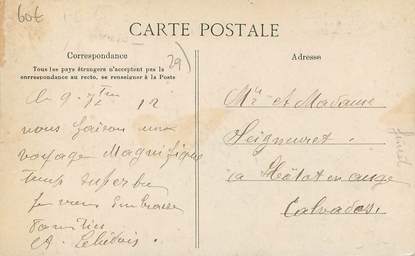 60t
CARTE POSTALE
Correspondance
Tous les pays étrangers n'acceptent pas la
correspondance au recto, se renseigner à la Poste
29)
Adresse
le 9 - 7bre 12
nous faison un
voyage Magnifique
temp superbe
je vous embrasse
A. Lebidois
Mr et Madame
Seigneuret
a Hôtot en auge
Calvados